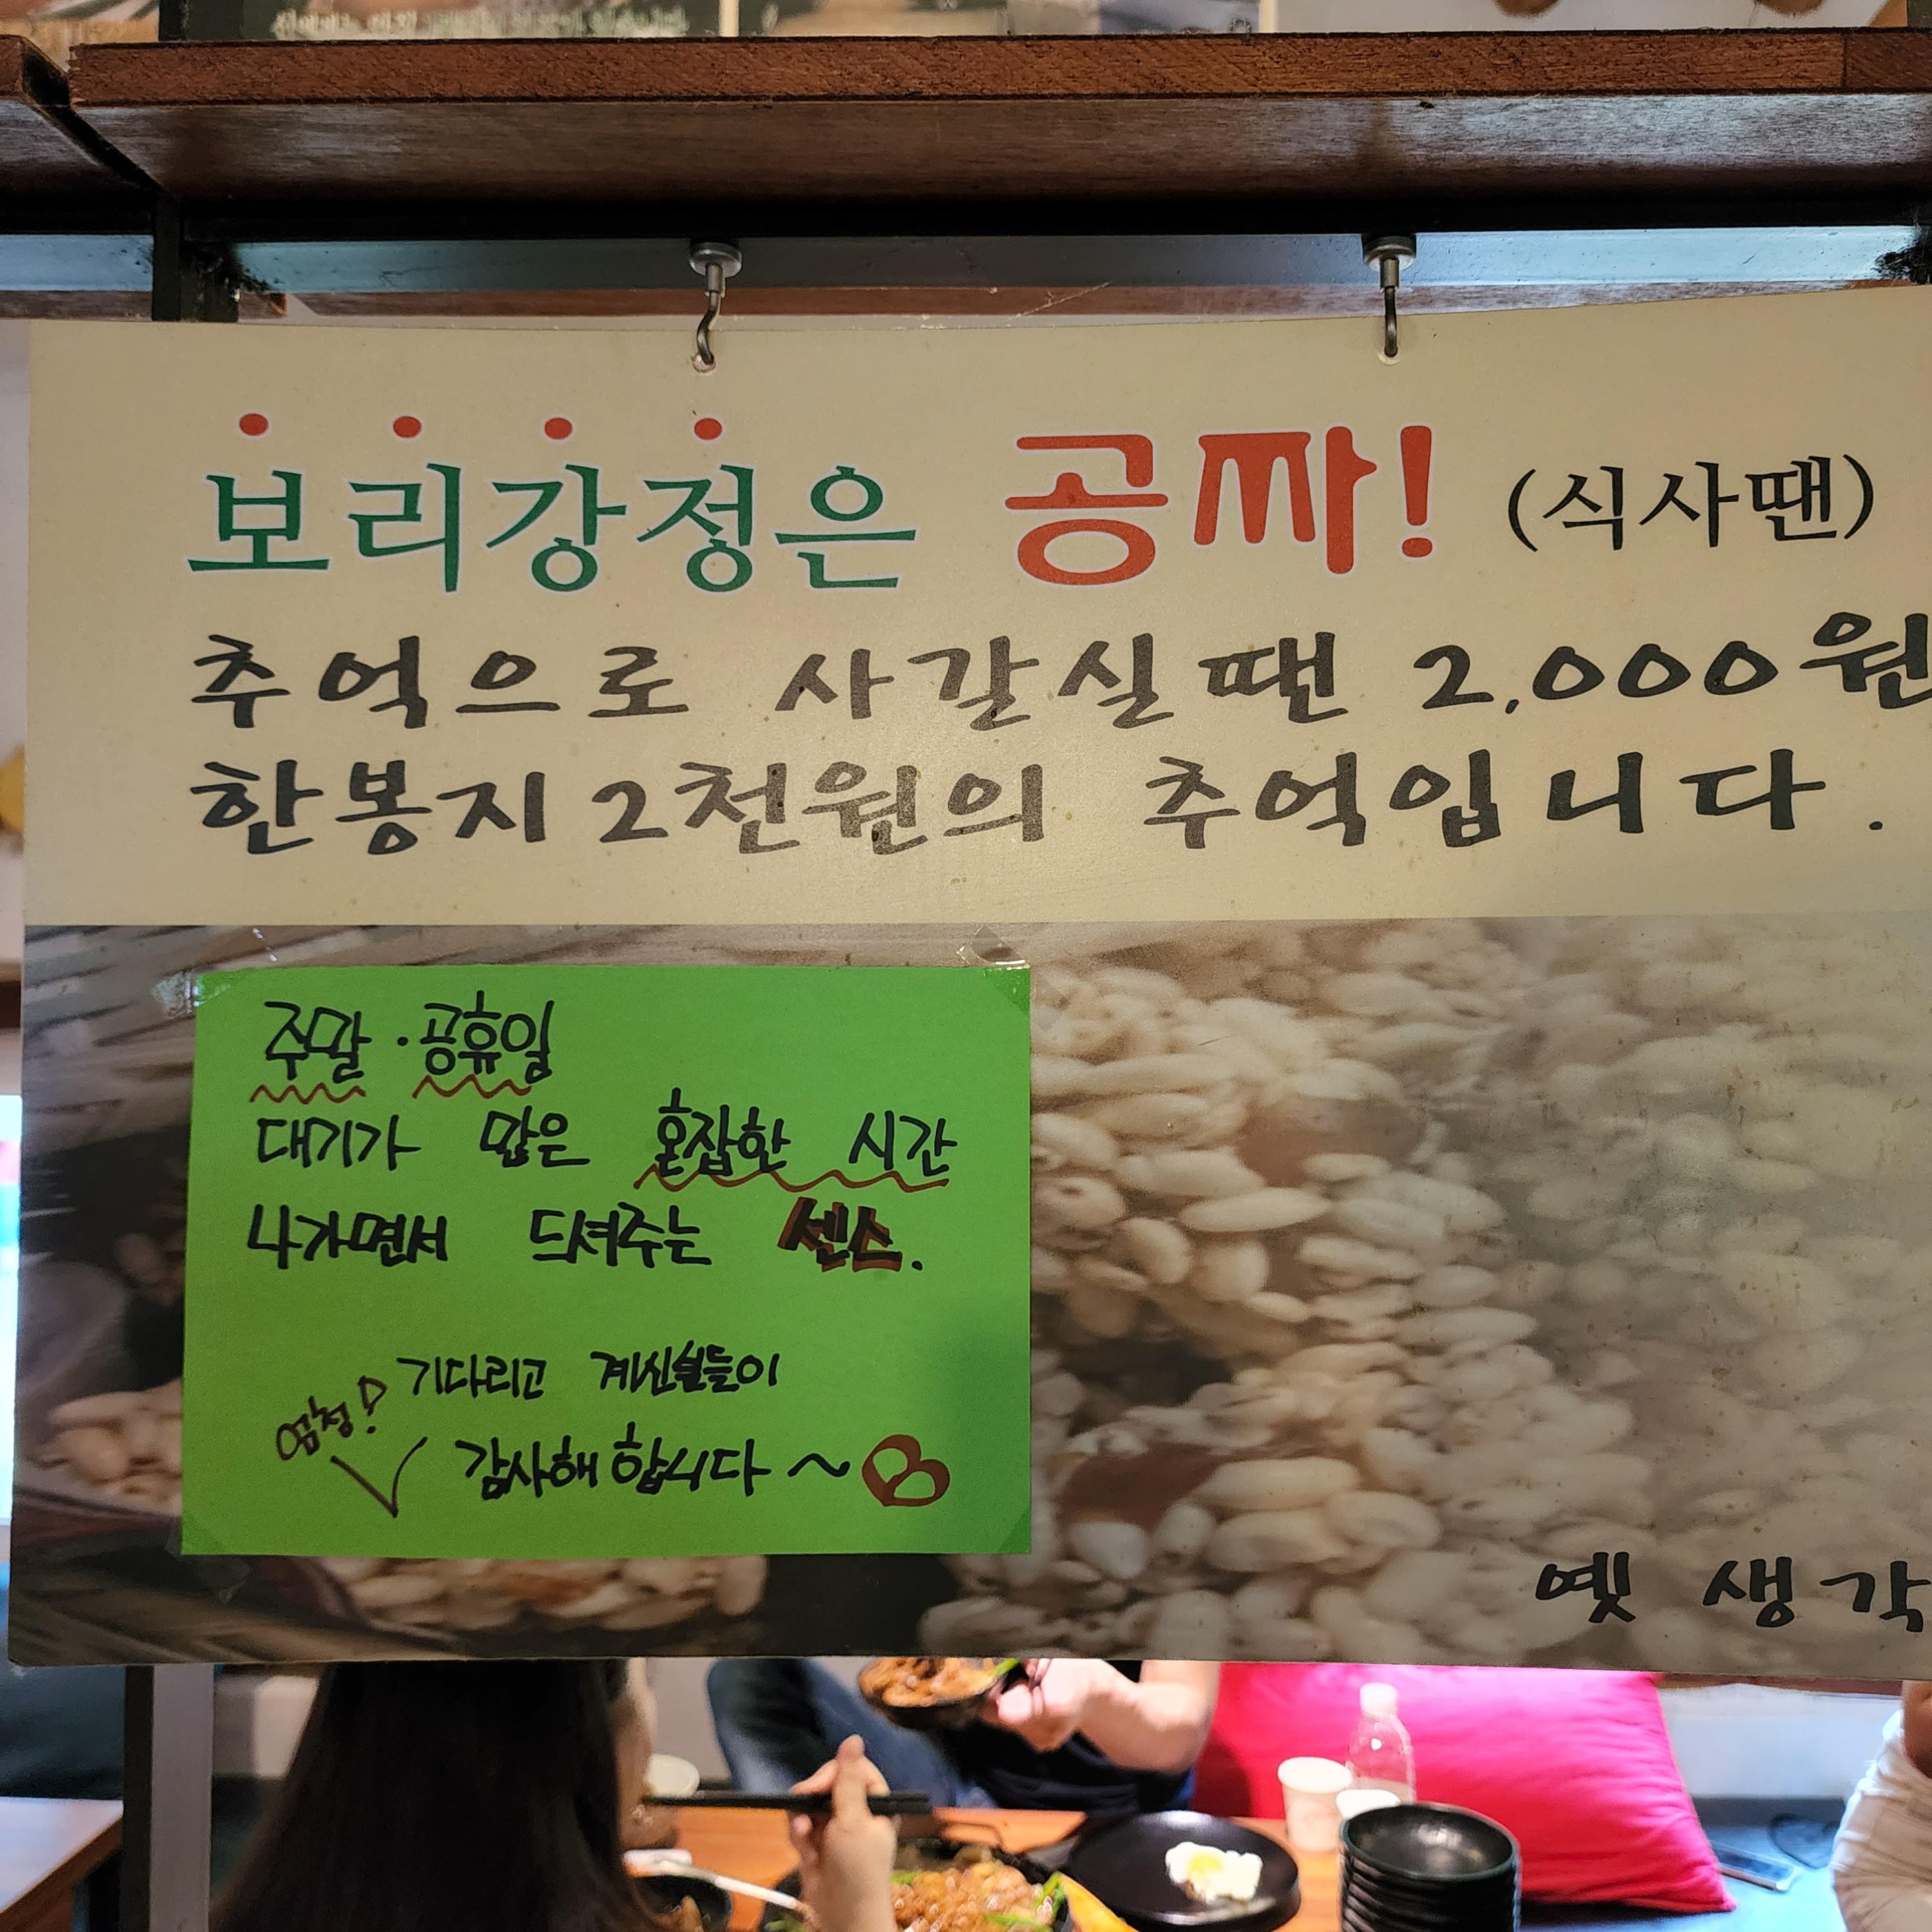 보리강정은 공짜! (식사땐)
추억으로 사갈실땐 2,000원
한봉지 2천원의 추억입니다.
주말·공휴일
대기가 많은 혼잡한 시간
나가면서 드셔주는 센스.
기다리고 계신분들이
엄청!
감사해 합니다~
옛 생각